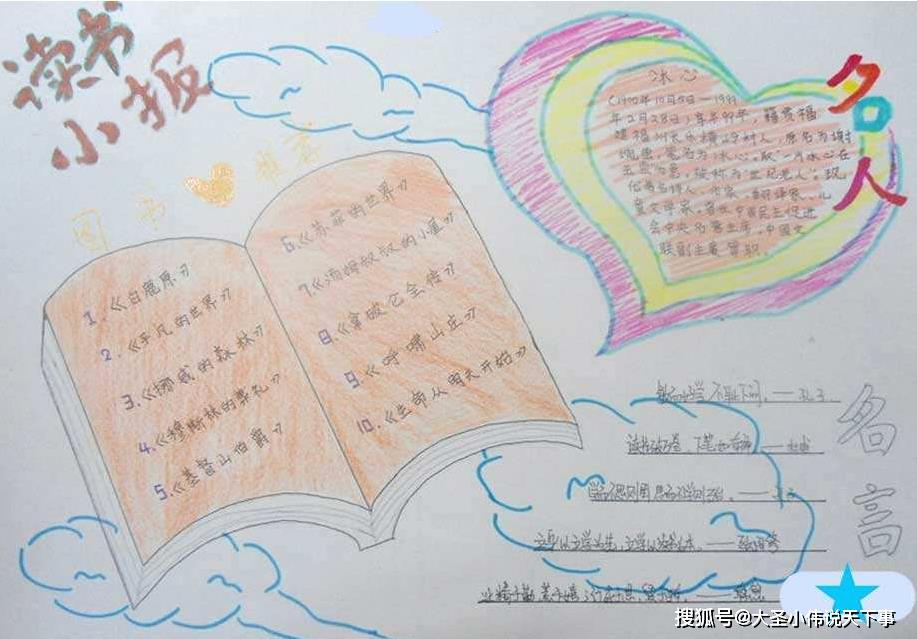 读书
小报
图书 推荐
1.《白鹿原》
2.《平凡的世界》
3.《挪威的森林》
4.《穆斯林的葬礼》
5.《基督山伯爵》
6.《苏菲的世界》
7.《汤姆叔叔的小屋》
8.《拿破仑全传》
9.《呼啸山庄》
10.《生命从明天开始》
名人
冰心
(1900年10月5日—1999
年2月28日)享年99岁,籍贯福
建福州长乐横岭村人,原名为谢
婉莹,笔名为"冰心"。取"一片冰心在
玉壶"为意。被称为"世纪老人"。现
代著名诗人、作家、翻译家、儿
童文学家,曾任中国民主促进
会中央名誉主席,中国文
联副主席等职。
名言
敏而好学,不耻下问。——孔子
读书破万卷,下笔如有神——杜甫
学而不思则罔,思而不学则殆。——孔子
立身以立学为先,立学以读书为本。——欧阳修
业精于勤,荒于嬉,行成于思,毁于随。——韩愈
搜狐号@大圣小伟说天下事